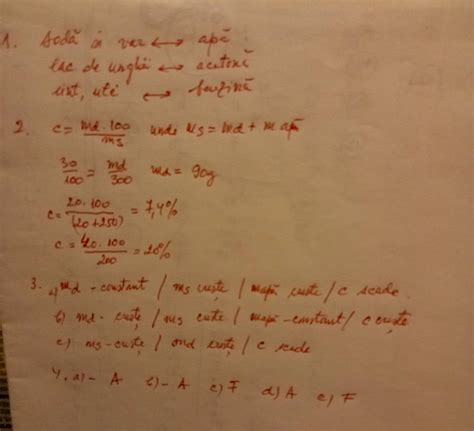 1. Sodă și var ↔ apă
lac de unghii ↔ acetonă
unt, ulei ↔ benzină
2. c = md · 100 / ms unde ms = md + m apă
30/100 = md/300 md = 90g
c = 20 · 100 / (20 + 250) = 7,4%
c = 40 · 100 / 200 = 20%
3. a) md - constant / ms crește / mapă crește / c scade
b) md - crește / ms crește / mapă - constant / c crește
c) ms - crește / md crește / c scade
4. a) - A b) - A c) F d) A e) F